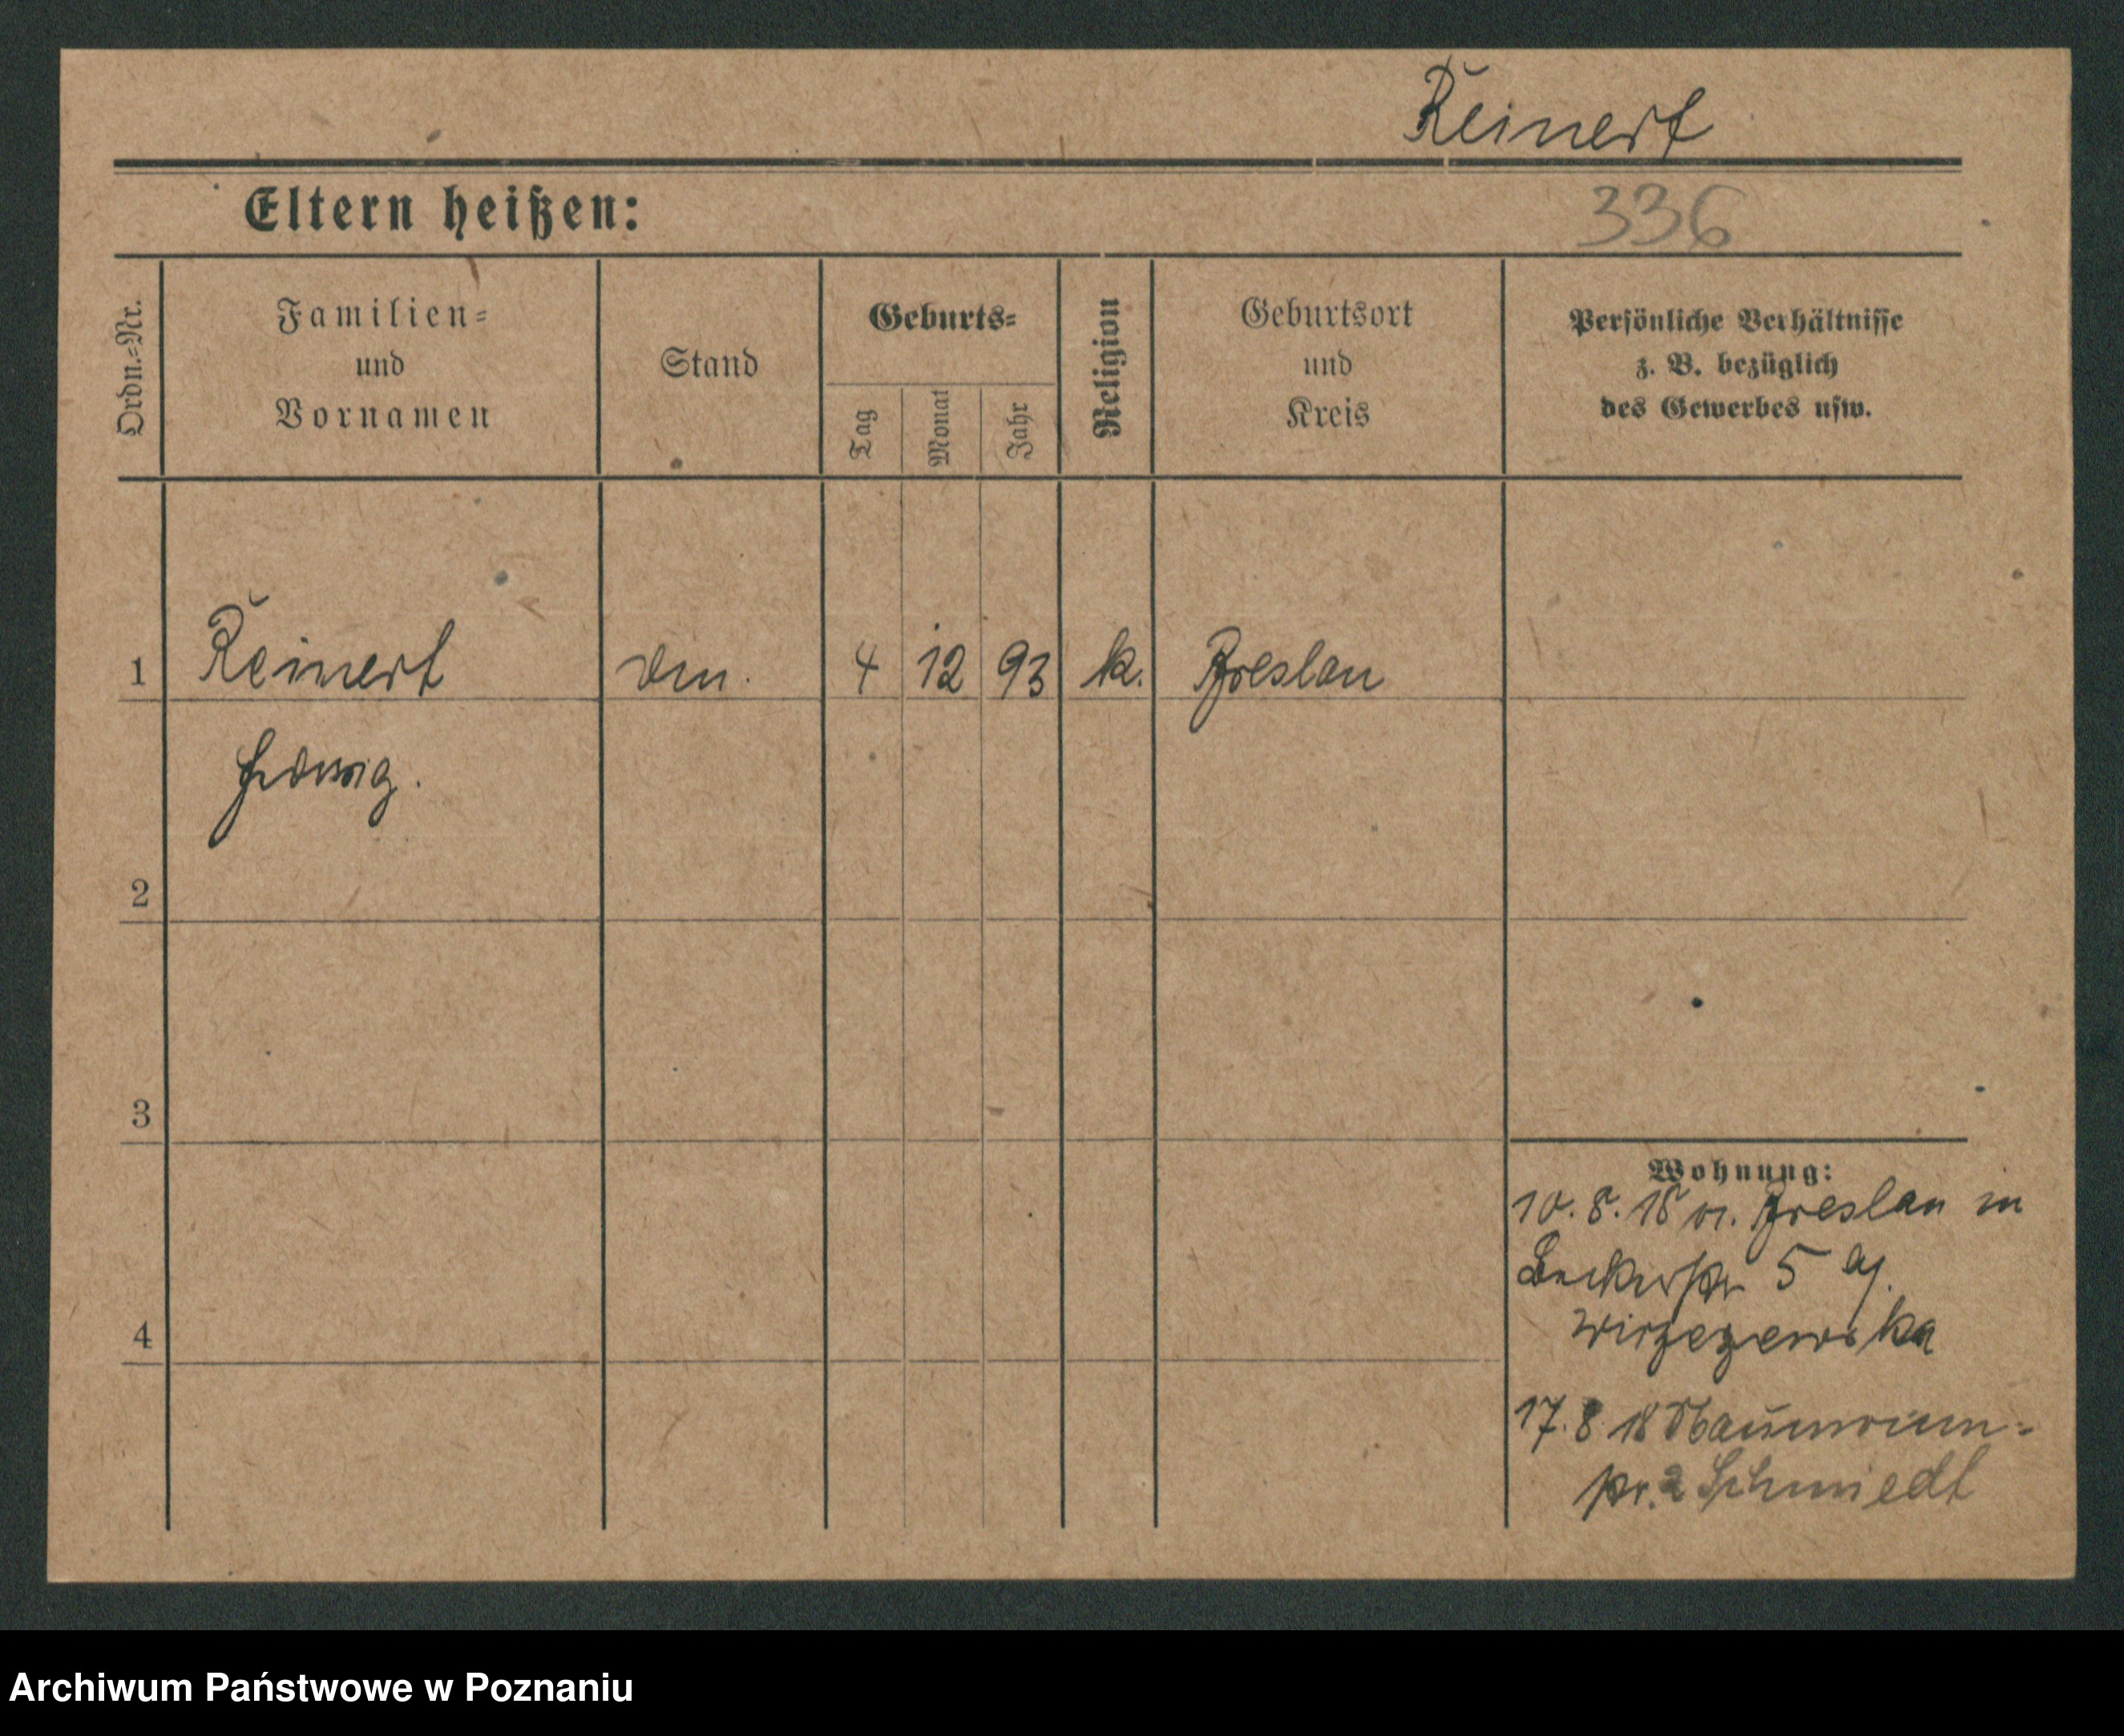 Reinert
Eltern heißen:
336
Ordn.=Nr.
Familien=
und
Vornamen
Stand
Geburts=
Tag
Monat
Jahr
Religion
Geburtsort
und
Kreis
Persönliche Verhältnisse
z. B. bezüglich
des Gewerbes usw.
1 Reinert 4 12 93 k. Breslau
Hedwig.
2
3
4
Wohnung:
10. 8. 18 v. Breslau in
5
17. 8 18
2 Schmiedt
Archiwum Państwowe w Poznaniu